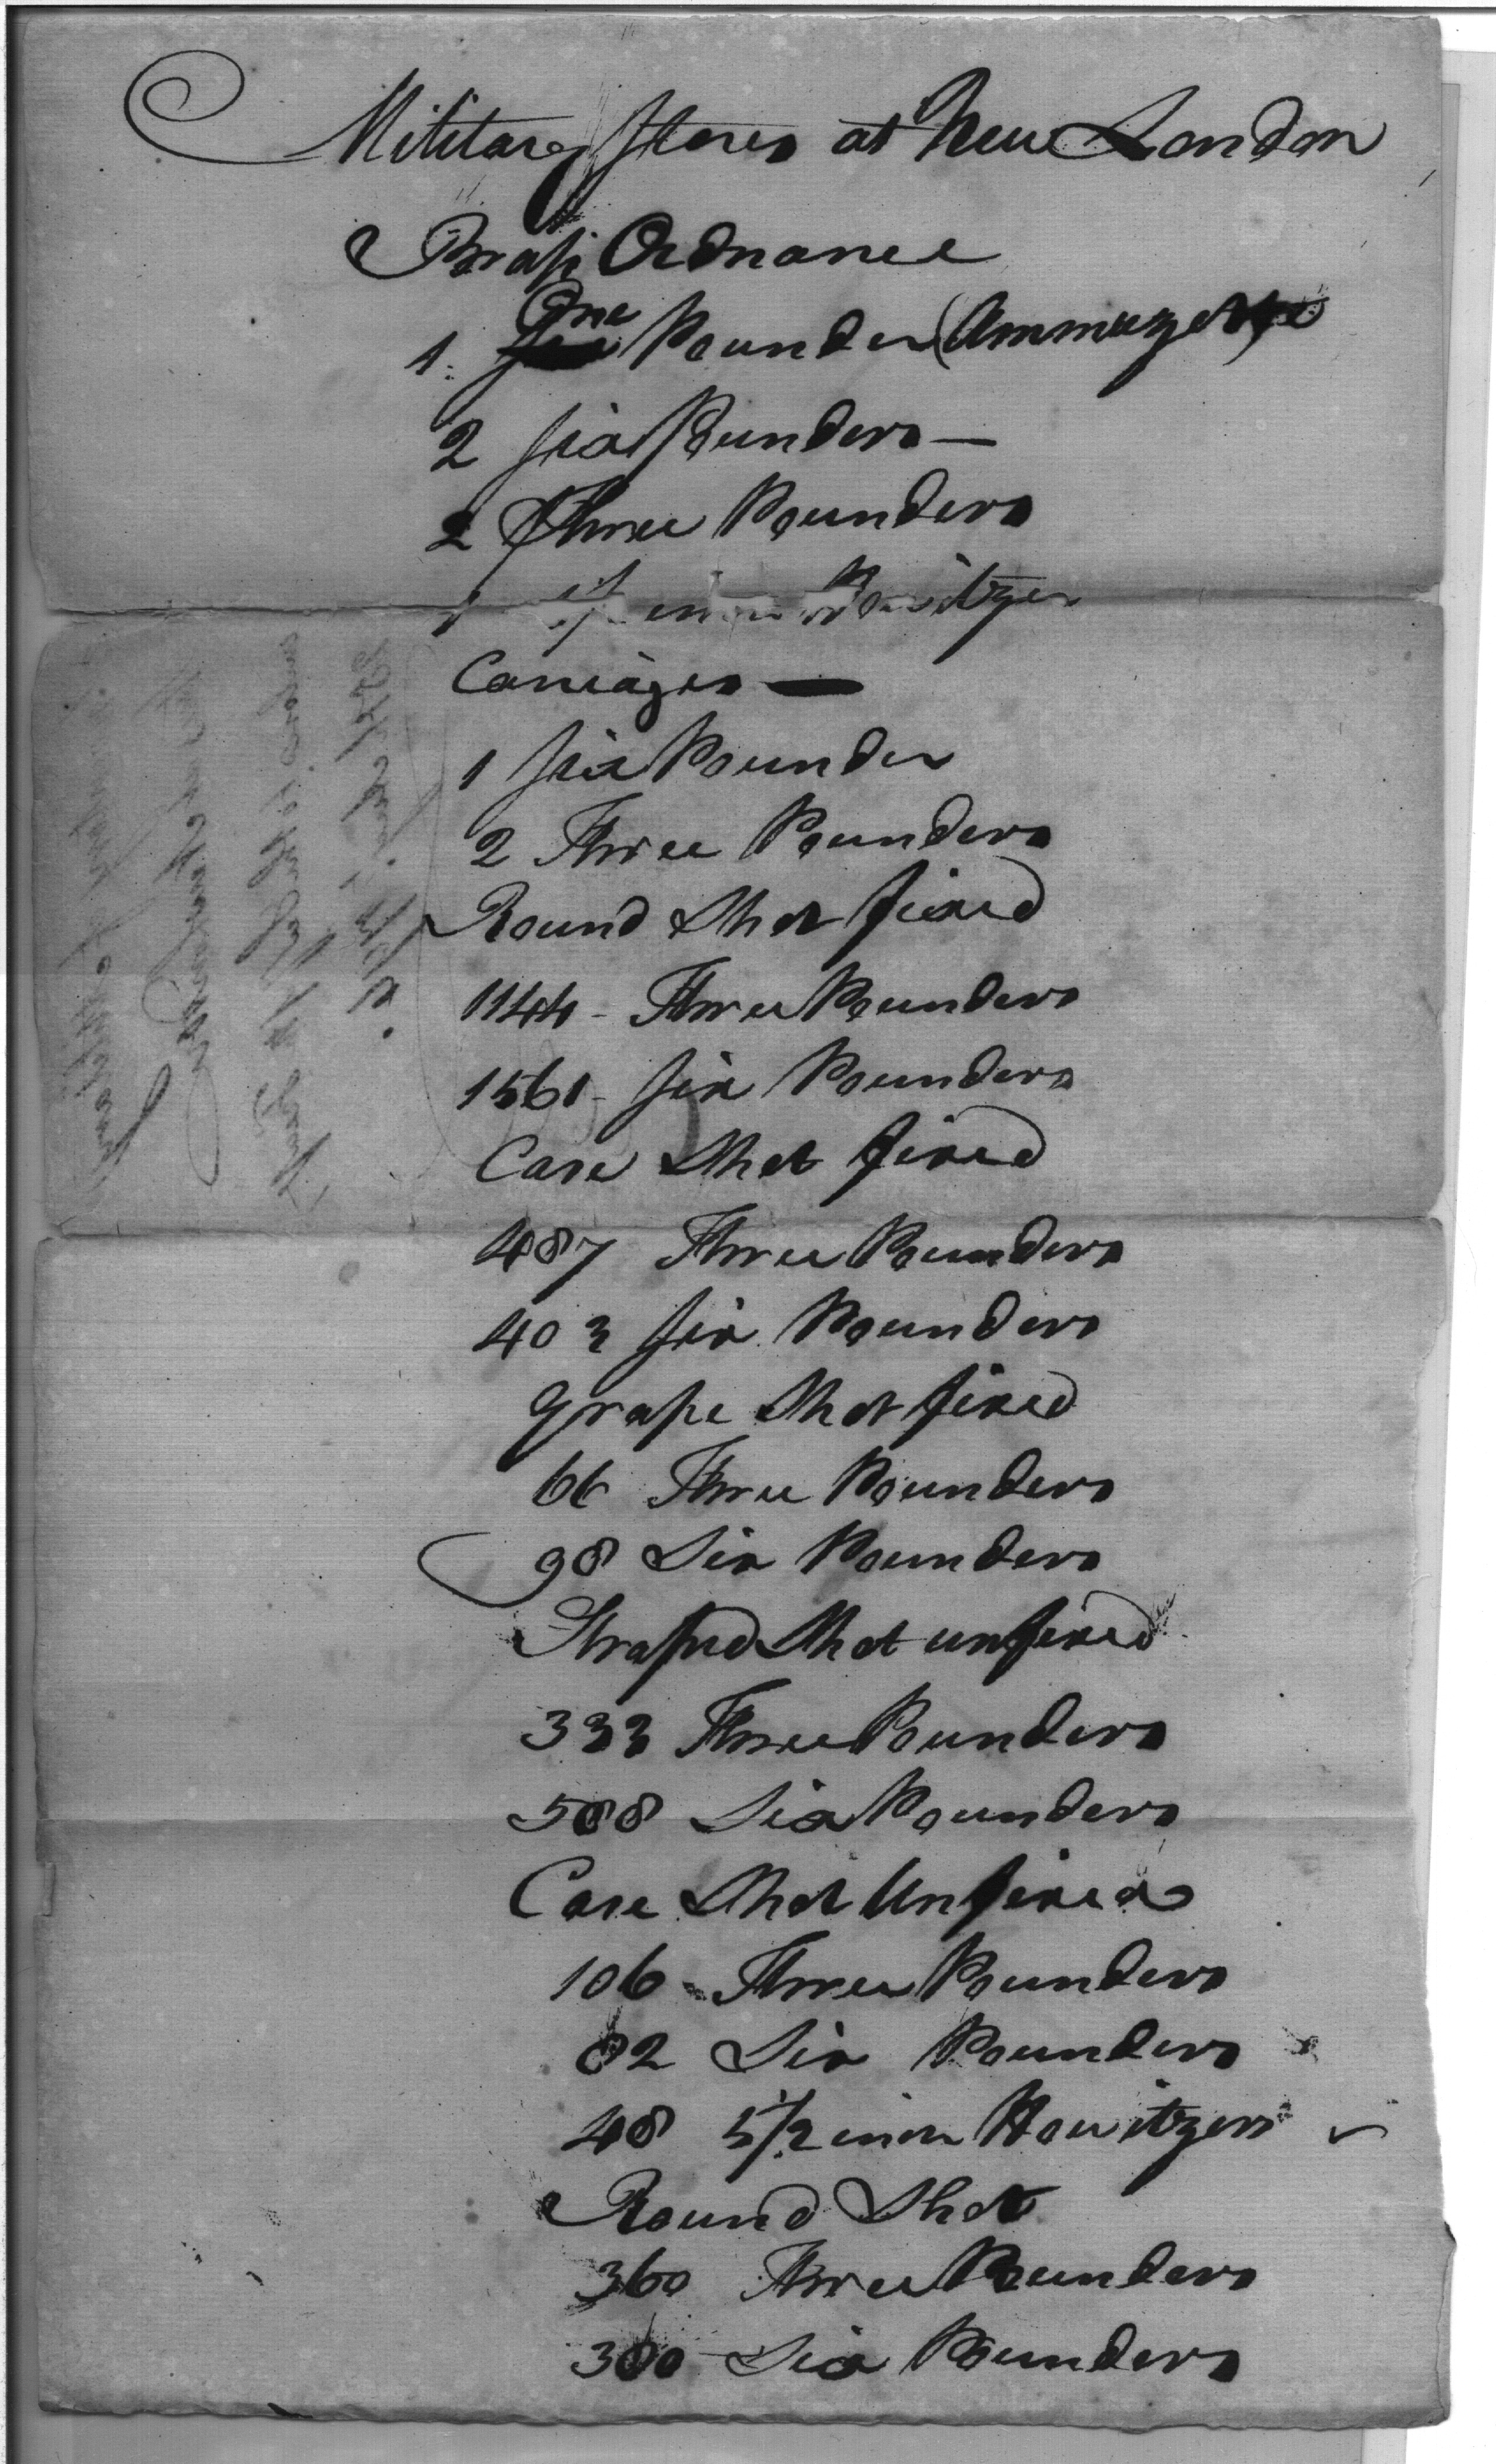 Military Stores at New London
Brass Ordnance
1. One Pounder (Ammuzette)
2 six Pounders —
2 Three Pounders
1 inch Howitzer
Carriages —
1 six Pounder
2 Three Pounders
Round Shot fixed
1144 - Three Pounders
1561 - six Pounders
Case Shot fixed
487 Three Pounders
403 six Pounders
Grape Shot fixed
66 Three Pounders
98 Six Pounders
Straped Shot unfixed
333 Three Pounders
588 Six Pounders
Case Shot Unfixed
106 - Three Pounders
82 Six Pounders
48 5 1/2 inch Howitzers
Round Shot
360 Three Pounders
300 Six Pounders